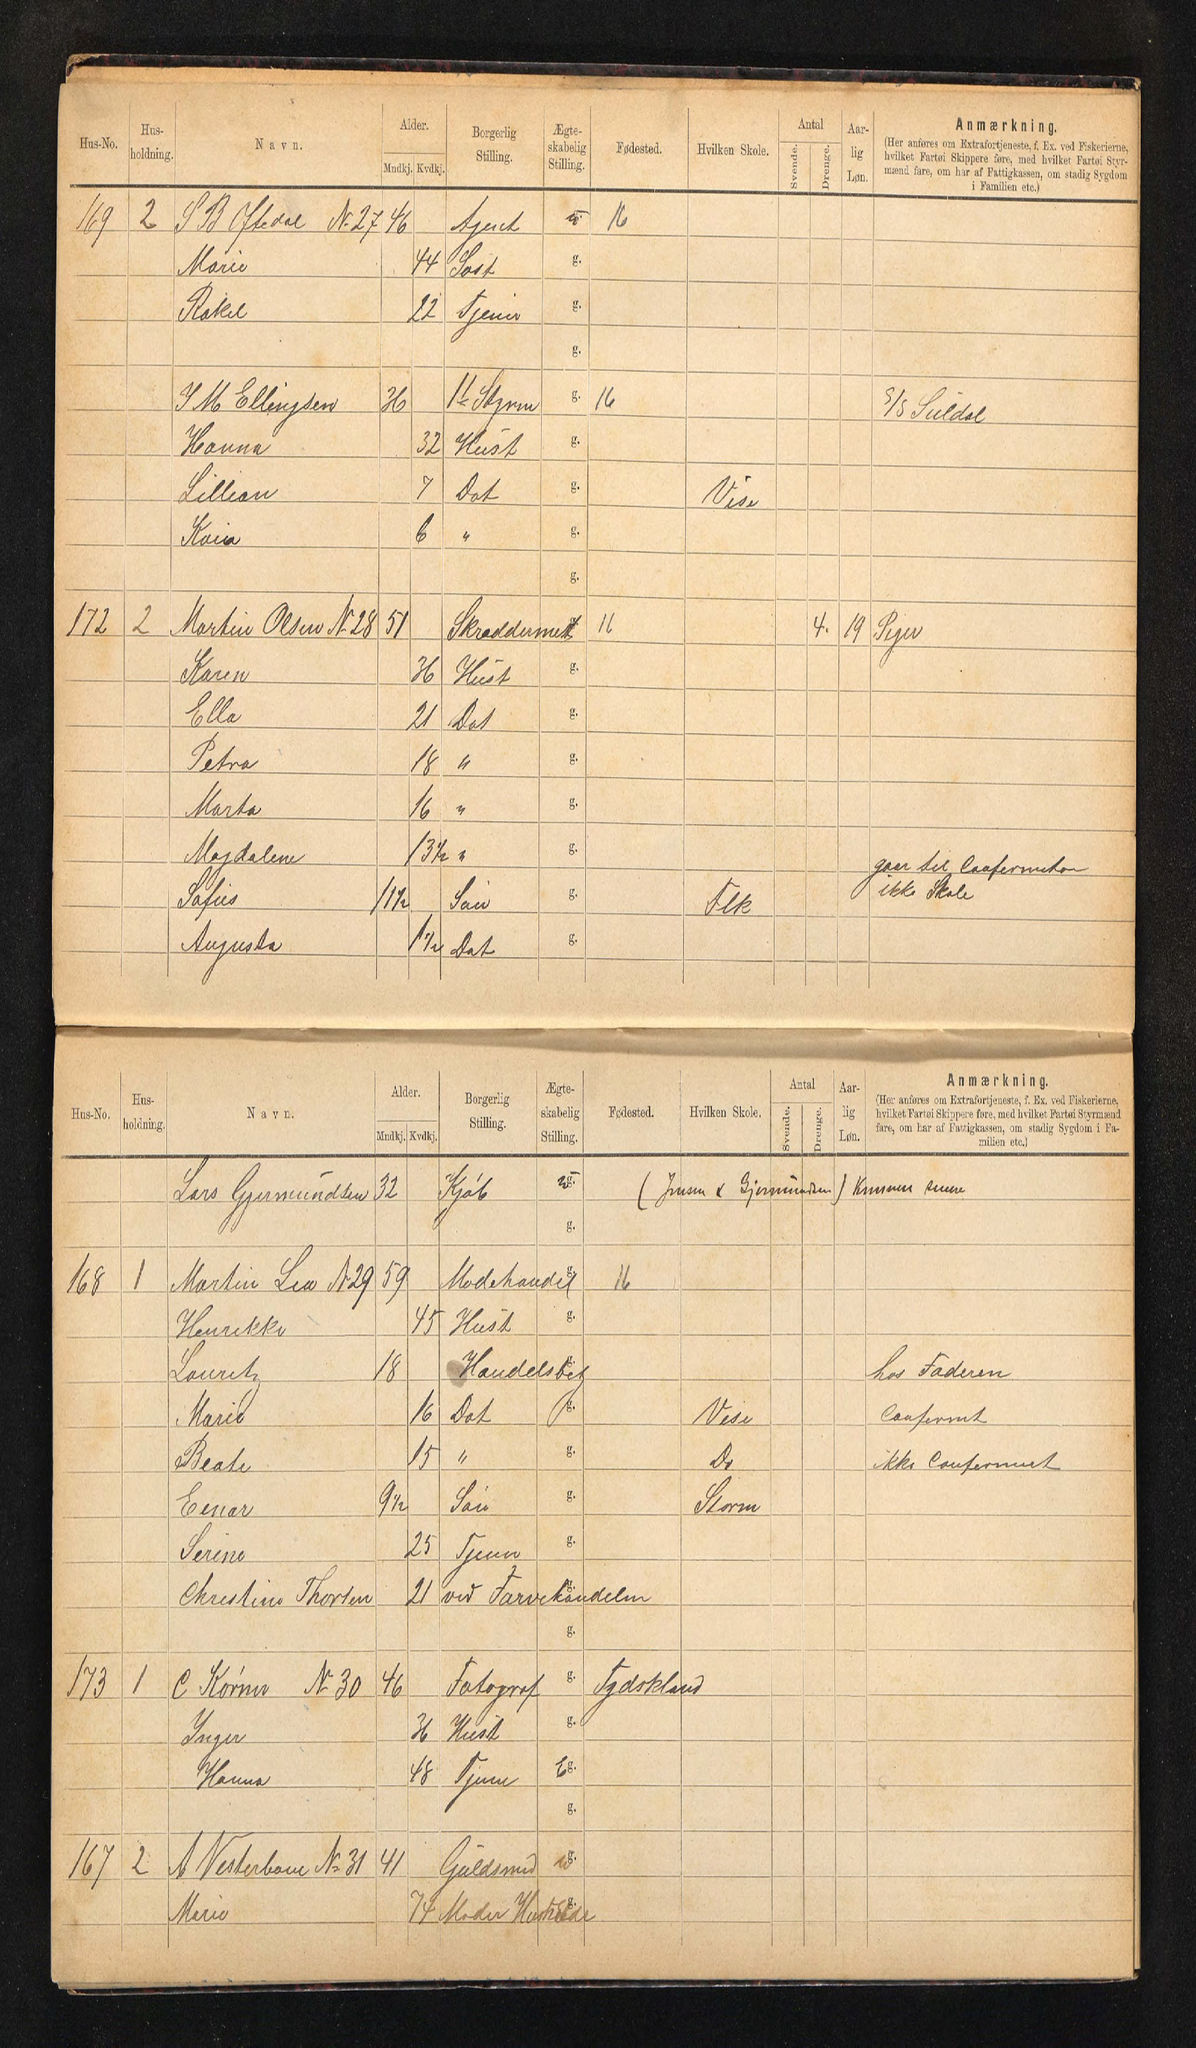 Hus-No. Hus-holdning. Navn. Alder. Mndkj. Kvdkj. Borgerlig Stilling. Ægte-skabelig Stilling. Fødested. Hvilken Skole. Antal Svende. Drenge. Aar-lig Løn. Anmærkning.
(Her anføres om Extrafortjeneste, f. Ex. ved Fiskerierne,
hvilket Fartøi Skippere føre, med hvilket Fartøi Styr-
mænd fare, om har af Fattigkassen, om stadig Sygdom
i Familien etc.)
169 2 S B Oftedal N. 27 46 Agent 16
Marie 44 Søst g.
Rakel 22 Tjener g.
g.
I M Ellingsen 36 1ste Styrm g. 16 S/S Suldal
Hanna 32 Hust g.
Lillian 7 Dat g. Vise
Kaia 6 " g.
g.
172 2 Martin Olsen N. 28 51 Skræddermst 16 4. 19 Piger
Karen 36 Hust g.
Ella 21 Dat g.
Petra 18 " g.
Marta 16 " g.
Magdalene 13½ " g. gaar til Confermation
Sofus 11½ Søn g. Flk ikke Skole
Augusta 1½ Dat g.
Hus-No. Hus-holdning. Navn. Alder. Mndkj. Kvdkj. Borgerlig Stilling. Ægte-skabelig Stilling. Fødested. Hvilken Skole. Antal Svende. Drenge. Aar-lig Løn. Anmærkning.
(Her anføres om Extrafortjeneste, f. Ex. ved Fiskerierne,
hvilket Fartøi Skippere føre, med hvilket Fartøi Styrmænd
fare, om har af Fattigkassen, om stadig Sygdom i Fa-
milien etc.)
Lars Gjermundsen 32 Kjøb g. (Jensen & Gjermundsen)
g.
168 1 Martin Lea N. 29 59 Modehandel g. 16
Henrikke 45 Hust g.
Lauritz 18 Handelsbet g. hos Faderen
Marie 16 Dat g. Vise Confermt
Beate 15 " g. Do ikke Confermert
Einar 9½ Søn g. Storm
Serine 25 Tjener g.
Christine Thorsen 21 ved Farvehandelen g.
g.
173 1 C Kørner N. 30 46 Fotograf g. Tydskland
Inger 36 Hust g.
Hanna 48 Tjener E g.
g.
167 2 A Vesterbone N. 31 41 Guldsmed g.
Marie 74 Moder g.